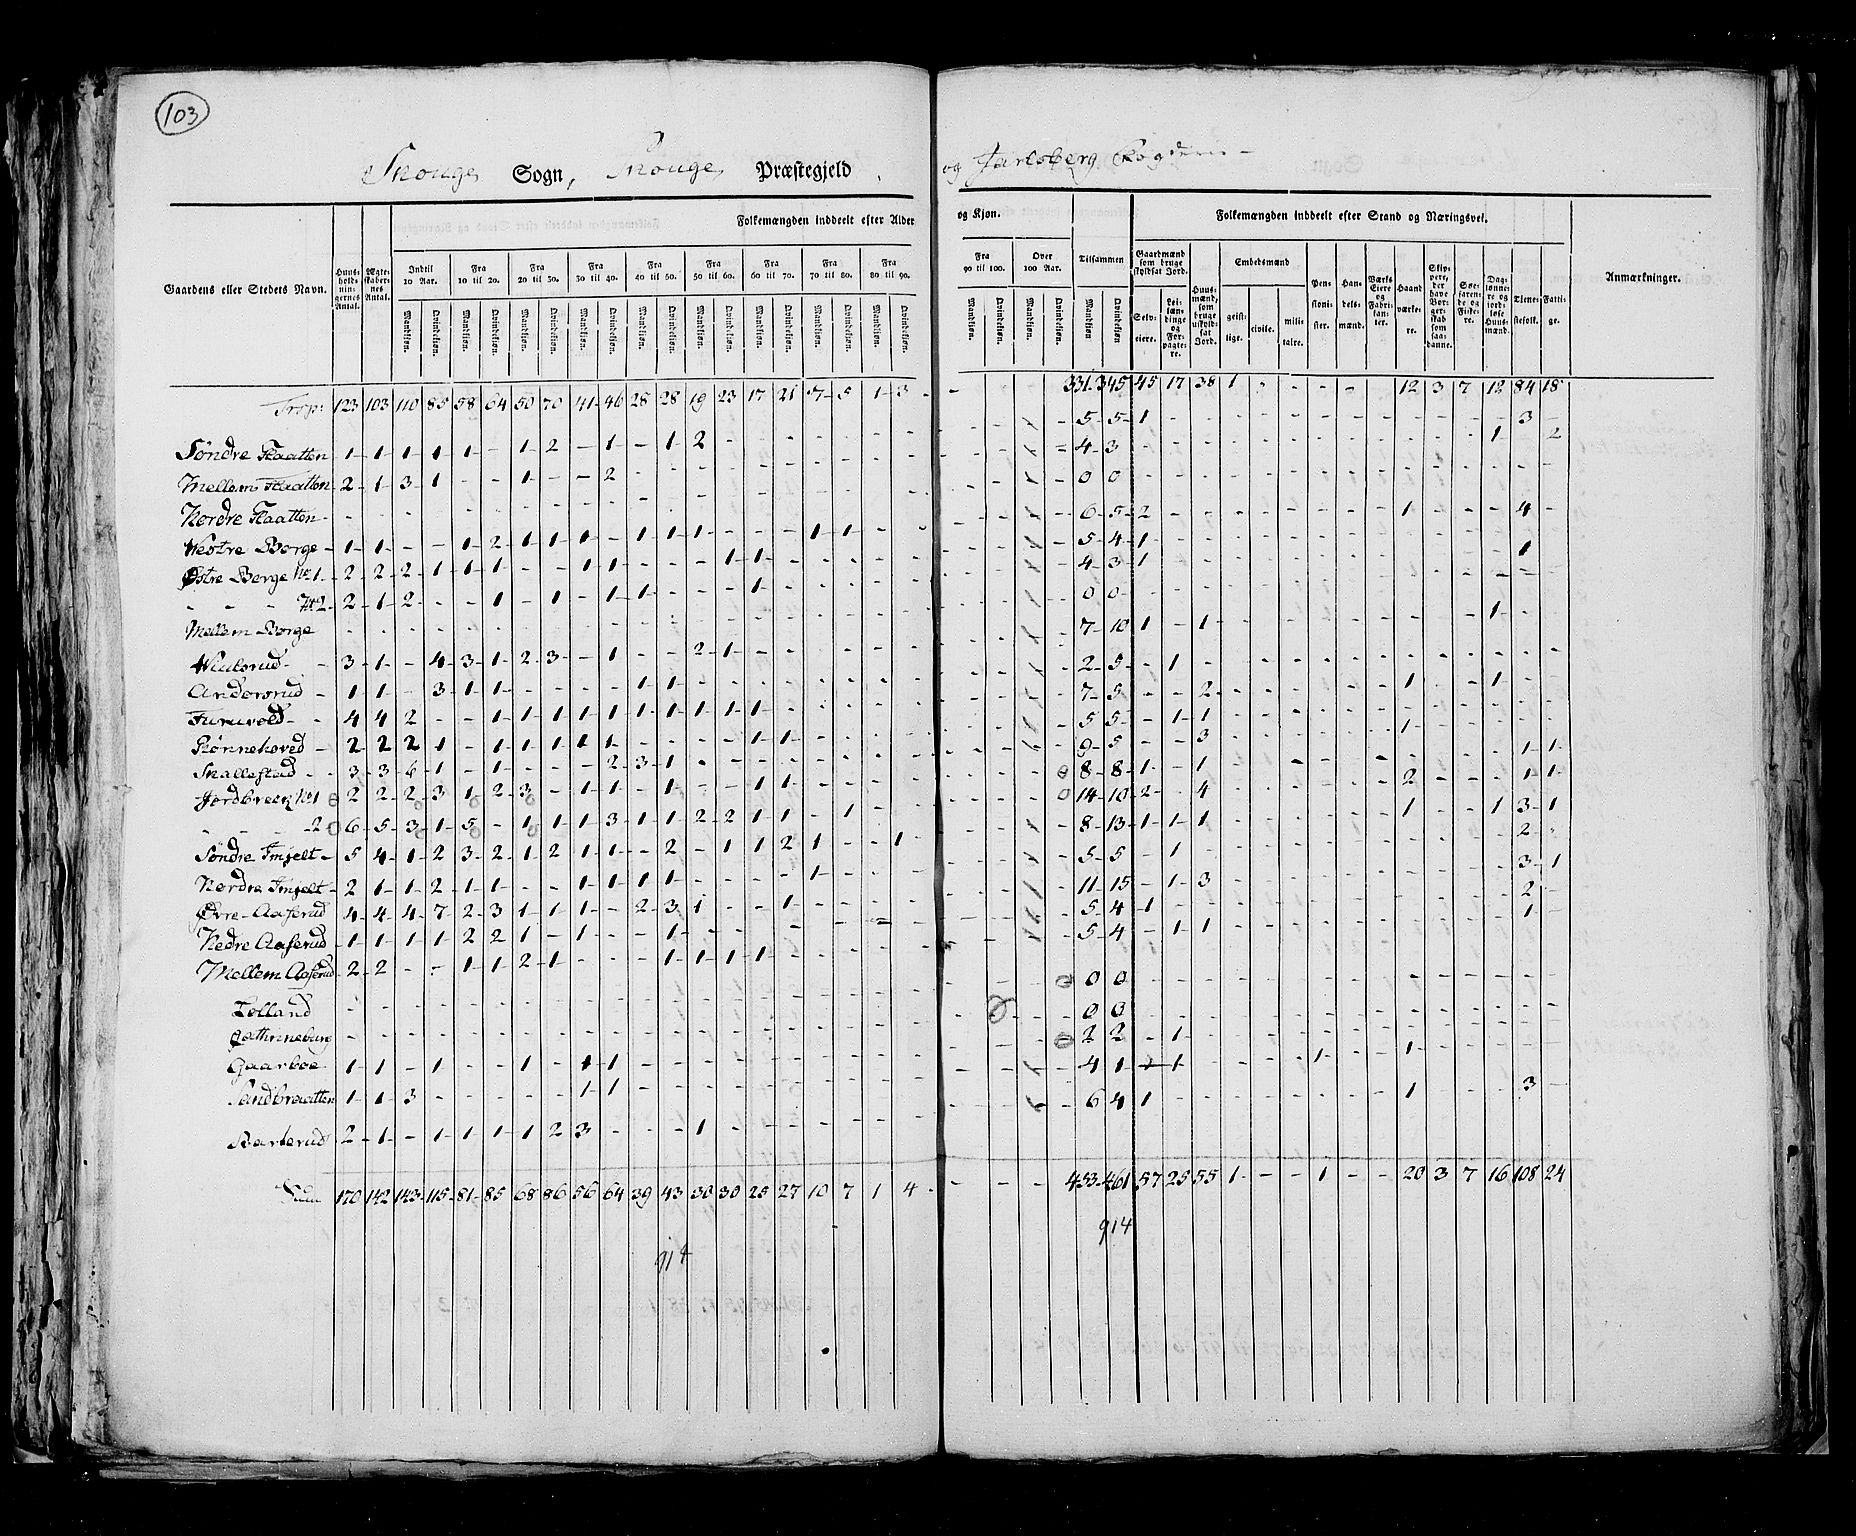 103
Skouge Sogn, Skouge Præstegjeld og Jarlsberg Fogderie
Gaardens eller Stedets Navn. Huusholdningernes Antal. Ægteskabernes Antal. Folkemængden inddeelt efter Alder og Kjøn. Folkemængden inddeelt efter Stand og Næringsvei. Anmærkninger.
Indtil 10 Aar. Fra 10 til 20. Fra 20 til 30. Fra 30 til 40. Fra 40 til 50. Fra 50 til 60. Fra 60 til 70. Fra 70 til 80. Fra 80 til 90. Fra 90 til 100. Over 100 Aar. Tilsammen
Gaardmænd som bruge skyldsat Jord. Huusmænd, som bruge uskyldsat Jord. Embedsmænd Pensionister. Handelsmænd. Værks Eiere og Fabrikanter. Haandværkere. Skippere, der have Borgerskab som saadanne. Søefarende og Fiskere. Daglønnere og jordløse Huusmænd. Tienestefolk. Fattige.
Mandkiøn. Qvindekiøn. Mandkiøn. Qvindekiøn. Mandkiøn. Qvindekiøn. Mandkiøn. Qvindekiøn. Mandkiøn. Qvindekiøn. Mandkiøn. Qvindekiøn. Mandkiøn. Qvindekiøn. Mandkiøn. Qvindekiøn. Mandkiøn. Qvindekiøn. Mandkiøn. Qvindekiøn. Mandkiøn. Qvindekiøn. Mandkiøn. Qvindekiøn. Selveiere. Leilændinge og Forpagtere. geistlige. civile. militaire.
Trsp: 123 103 110 85 58 64 50 70 41 46 28 28 19 23 17 21 7 5 1 3 - - - - 331 345 45 17 38 1 - - - - 12 3 7 12 84 18
Søndre Skaatten 1 1 1 1 1 - 1 2 - 1 - 1 2 - 5 5 1 3
Mellem Skaatten 2 1 3 1 - - 1 - - 2 - 4 3 1 2
Nordre Skaatten - 0 0
Westre Borge 1 1 - - 1 2 1 1 1 - 1 1 1 - - - 1 1 - 6 5 2 1 4
Østre Berge No 1 2 2 2 1 1 1 - - 1 1 - - - 1 1 - 5 4 1
No 2 2 1 2 - - 1 - 1 - 1 1 - - - 1 - 4 3 1 1
Mellem Borge - 0 0
3 1 - 4 3 1 2 3 - 1 - - 2 1 - 7 10 1 - 1 1
Andersrud 1 1 - 3 1 1 - - - - 1 1 - 2 5 - 1
Furuvold 4 4 2 - - 1 1 1 1 1 1 1 1 1 1 - 7 5 - - 2 1 1
Rønnehoved 2 2 2 1 - 1 1 1 1 1 - - - - 1 1 - 5 5 - 1 1
Snallestad 3 3 6 1 - 1 - - - 2 3 1 - 9 5 - - 3 1 1 1
Jordbreck No 1 2 2 2 3 1 2 3 - 1 1 - 1 - - 1 1 - 8 8 1 - 1 2 1 1
2 6 5 3 1 5 - 1 1 1 3 1 1 2 2 1 1 - 1 - 14 10 2 - 4 1 1 3 1
Søndre Fmjelt 5 4 1 2 3 2 1 2 1 1 - 2 - 1 1 2 1 - - 1 8 13 1 1 1 2
Nordre Fmjelt 2 1 1 2 1 1 - - 1 1 1 1 - - - - 1 - 5 5 - 1 3 1
Øvre Aaserud 4 4 4 7 2 3 1 1 1 - 2 3 1 - - 1 - 11 15 - 1 3 2
Nedre Aaserud 1 1 1 1 2 2 1 - 1 - - 1 - 5 4 1 1
Mellem Aaserud 2 2 - - 1 1 2 1 - - - 1 1 1 1 - 5 4 - 1 1
Lolland - 0 0
Cathrineburg - 0 0
Gaarboe 1 1 - 1 - - 1 - 1 1 - 2 2 - 1
Sandbraatten 1 1 3 - - - - - 1 1 - 4 1 - 1 1 1
Barkerud 2 1 - 1 1 1 1 2 3 - - - 1 - 6 4 1 1 3
Sum 170 142 143 115 81 85 68 86 56 64 39 43 30 30 25 27 10 7 1 4 - - - - 453 461 57 25 55 1 - - 1 - - 20 3 7 16 108 24
914
914